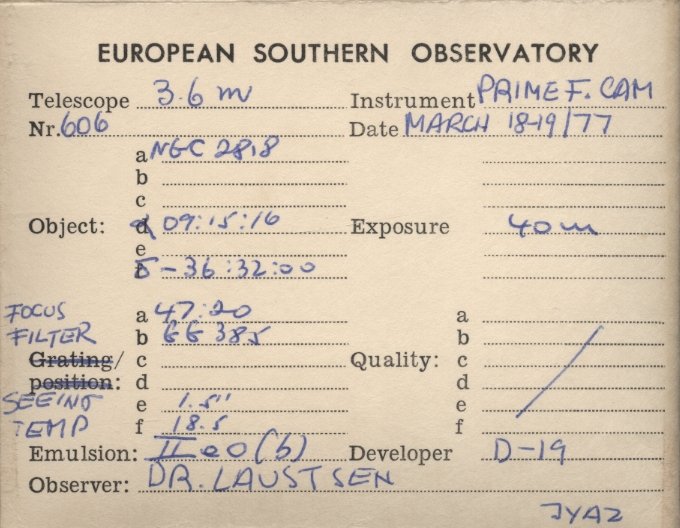 EUROPEAN SOUTHERN OBSERVATORY
Telescope 3.6 m Instrument PRIME F. CAM
Nr. 606 Date MARCH 18-19/77
a NGC 2818
b
c
Object: α 09:15:16 Exposure 40m
e
δ -36:32:00
FOCUS a 47.20 a
FILTER b GG 385 b
Grating/ c Quality: c
position: d d
SEEING e 1.5" e
TEMP f 18.5 f
Emulsion: IIaO (b) Developer D-19
Observer: DR. LAUSTSEN